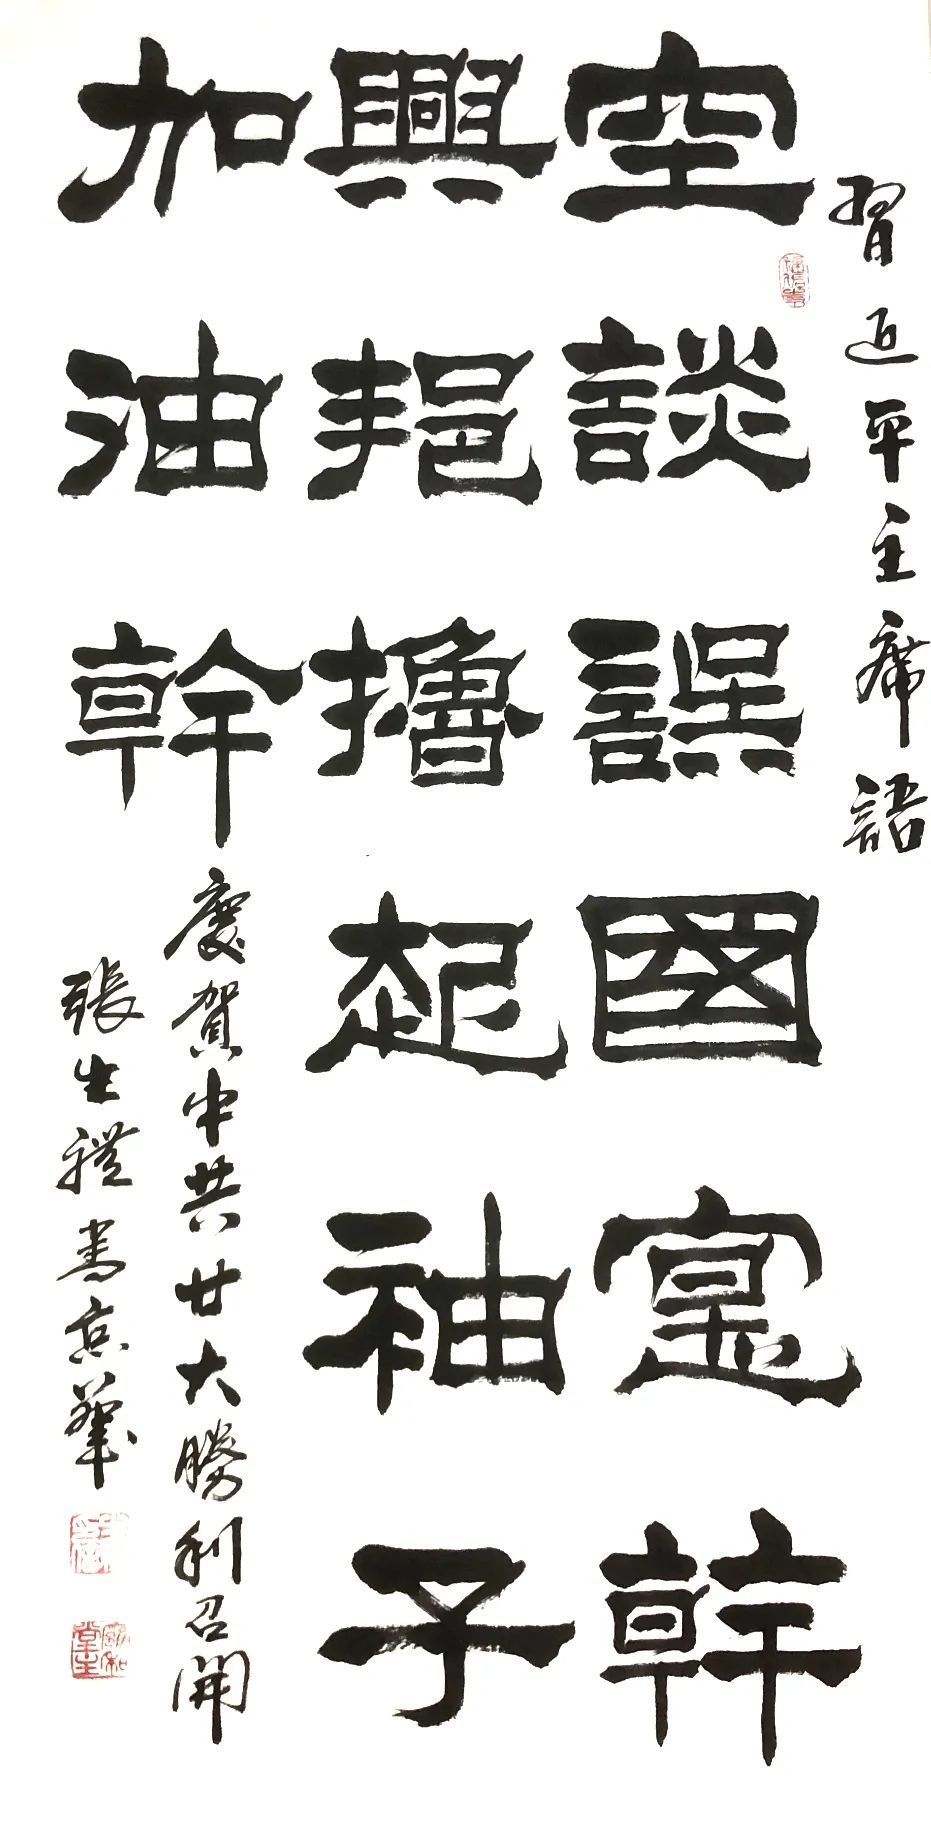 習近平主席語
空談誤國寔幹
興邦擼起袖子
加油幹
慶賀中共廿大勝利召開
張生禮書京華